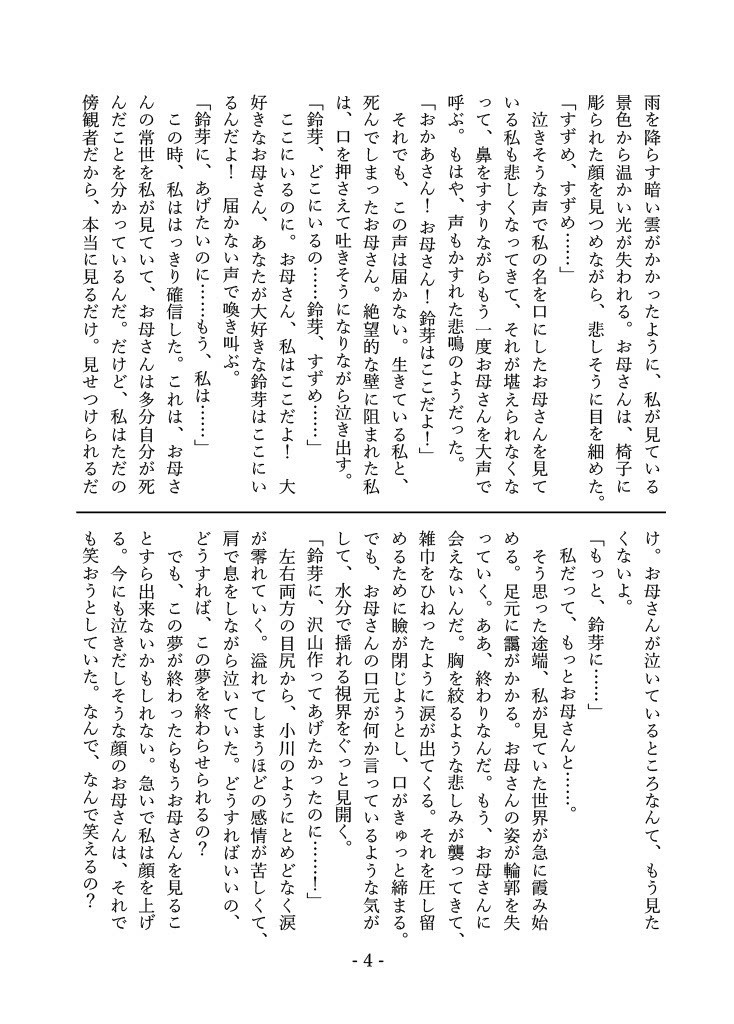 雨を降らす暗い雲がかかったように、私が見ている
景色から温かい光が失われる。お母さんは、椅子に
彫られた顔を見つめながら、悲しそうに目を細めた。
「すずめ、すずめ……」
　泣きそうな声で私の名を口にしたお母さんを見て
いる私も悲しくなってきて、それが堪えられなくな
って、鼻をすすりながらもう一度お母さんを大声で
呼ぶ。もはや、声もかすれた悲鳴のようだった。
「おかあさん！お母さん！鈴芽はここだよ！」
　それでも、この声は届かない。生きている私と、
死んでしまったお母さん。絶望的な壁に阻まれた私
は、口を押さえて吐きそうになりながら泣き出す。
「鈴芽、どこにいるの……鈴芽、すずめ……」
　ここにいるのに。お母さん、私はここだよ！　大
好きなお母さん、あなたが大好きな鈴芽はここにい
るんだよ！　届かない声で喚き叫ぶ。
「鈴芽に、あげたいのに……もう、私は……」
　この時、私ははっきり確信した。これは、お母さ
んの常世を私が見ていて、お母さんは多分自分が死
んだことを分かっているんだ。だけど、私はただの
傍観者だから、本当に見るだけ。見せつけられるだ
け。お母さんが泣いているところなんて、もう見た
くないよ。
「もっと、鈴芽に……」
　私だって、もっとお母さんと……。
　そう思った途端、私が見ていた世界が急に霞み始
める。足元に靄がかかる。お母さんの姿が輪郭を失
っていく。ああ、終わりなんだ。もう、お母さんに
会えないんだ。胸を絞るような悲しみが襲ってきて、
雑巾をひねったように涙が出てくる。それを圧し留
めるために瞼が閉じようとし、口がきゅっと締まる。
でも、お母さんの口元が何か言っているような気が
して、水分で揺れる視界をぐっと見開く。
「鈴芽に、沢山作ってあげたかったのに……！」
　左右両方の目尻から、小川のようにとめどなく涙
が零れていく。溢れてしまうほどの感情が苦しくて、
肩で息をしながら泣いていた。どうすればいいの、
どうすれば、この夢を終わらせられるの？
　でも、この夢が終わったらもうお母さんを見るこ
とすら出来ないかもしれない。急いで私は顔を上げ
る。今にも泣きだしそうな顔のお母さんは、それで
も笑おうとしていた。なんで、なんで笑えるの？
- 4 -